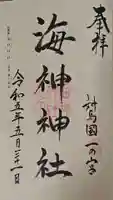 奉拝
対馬国一の宮
海神神社
令和五年五月二十一日